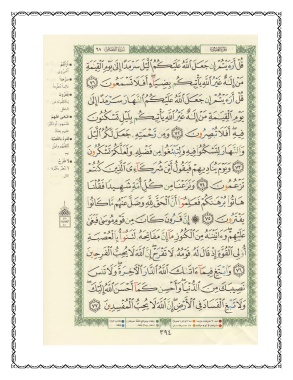 قُلْ أَرَءَيْتُمْ إِن جَعَلَ ٱللَّهُ عَلَيْكُمُ ٱلَّيْلَ سَرْمَدًا إِلَىٰ يَوْمِ ٱلْقِيَٰمَةِ
مَنْ إِلَٰهٌ غَيْرُ ٱللَّهِ يَأْتِيكُم بِضِيَآءٍ أَفَلَا تَسْمَعُونَ ٧١
قُلْ أَرَءَيْتُمْ إِن جَعَلَ ٱللَّهُ عَلَيْكُمُ ٱلنَّهَارَ سَرْمَدًا إِلَىٰ
يَوْمِ ٱلْقِيَٰمَةِ مَنْ إِلَٰهٌ غَيْرُ ٱللَّهِ يَأْتِيكُم بِلَيْلٍ تَسْكُنُونَ
فِيهِ أَفَلَا تُبْصِرُونَ ٧٢ وَمِن رَّحْمَتِهِۦ جَعَلَ لَكُمُ ٱلَّيْلَ
وَٱلنَّهَارَ لِتَسْكُنُوا۟ فِيهِ وَلِتَبْتَغُوا۟ مِن فَضْلِهِۦ وَلَعَلَّكُمْ تَشْكُرُونَ
٧٣ وَيَوْمَ يُنَادِيهِمْ فَيَقُولُ أَيْنَ شُرَكَآءِىَ ٱلَّذِينَ كُنتُمْ
تَزْعُمُونَ ٧٤ وَنَزَعْنَا مِن كُلِّ أُمَّةٍ شَهِيدًا فَقُلْنَا
هَاتُوا۟ بُرْهَٰنَكُمْ فَعَلِمُوٓا۟ أَنَّ ٱلْحَقَّ لِلَّهِ وَضَلَّ عَنْهُم مَّا كَانُوا۟
يَفْتَرُونَ ٧٥ إِنَّ قَٰرُونَ كَانَ مِن قَوْمِ مُوسَىٰ فَبَغَىٰ
عَلَيْهِمْ وَءَاتَيْنَٰهُ مِنَ ٱلْكُنُوزِ مَآ إِنَّ مَفَاتِحَهُۥ لَتَنُوٓأُ بِٱلْعُصْبَةِ
أُو۟لِى ٱلْقُوَّةِ إِذْ قَالَ لَهُۥ قَوْمُهُۥ لَا تَفْرَحْ إِنَّ ٱللَّهَ لَا يُحِبُّ ٱلْفَرِحِينَ
٧٦ وَٱبْتَغِ فِيمَآ ءَاتَىٰكَ ٱللَّهُ ٱلدَّارَ ٱلْءَاخِرَةَ وَلَا تَنسَ
نَصِيبَكَ مِنَ ٱلدُّنْيَا وَأَحْسِن كَمَآ أَحْسَنَ ٱللَّهُ إِلَيْكَ
وَلَا تَبْغِ ٱلْفَسَادَ فِى ٱلْأَرْضِ إِنَّ ٱللَّهَ لَا يُحِبُّ ٱلْمُفْسِدِينَ ٧٧
٣٩٤